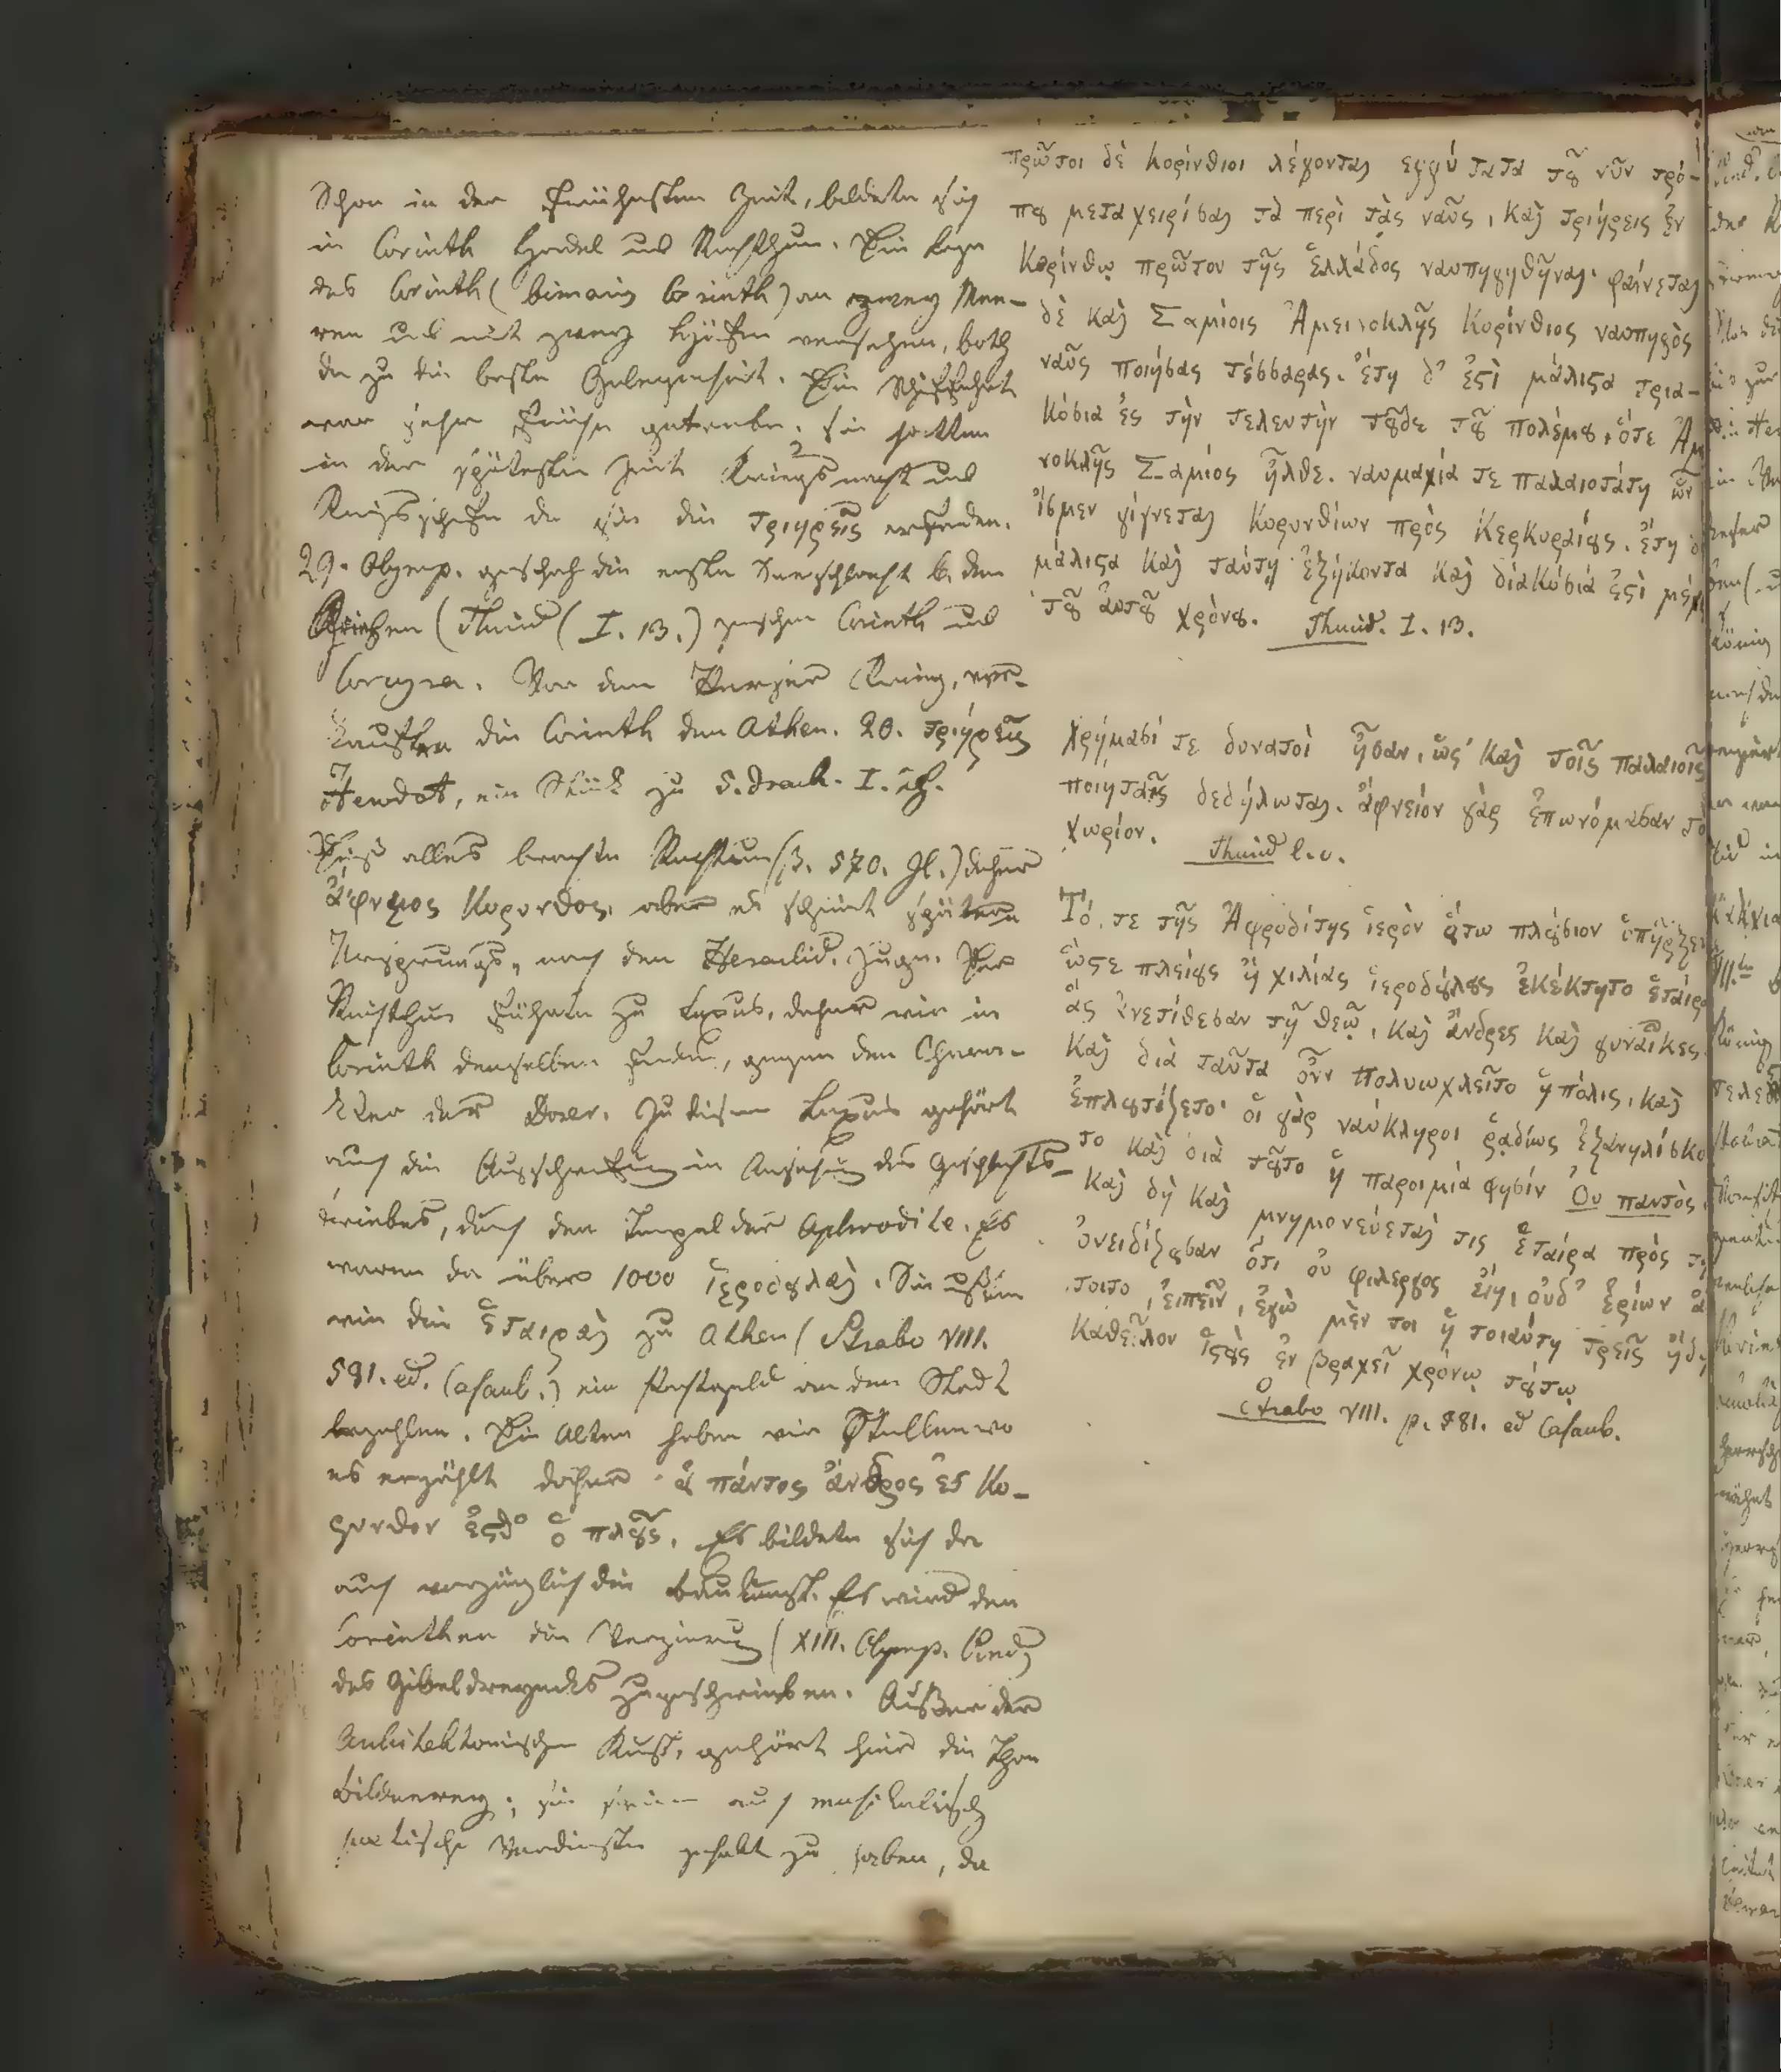 Schon in der frühesten Zeit, bildete sich
in Corinth Handel und Reichthum. Die Lage
des Corinth (bimaris Corinth) an zwey Mee-
ren und mit zwey Häfen versehen, both
da zu die beste Gelegenheit. Die Schiffahrt
war sehr frühe getrieben. Sie hatten
in der spätesten Zeit Kriegsmacht und
Kriegsschiffe da sie die τριηρεῖς erfanden.
29. Olymp. geschah die erste Seeschlacht b. den
Griechen (Thucid (I. 13.) zwischen Corinth und
Corcyra. Vor dem Perser Krieg, ver-
kauften die Corinth den Athen. 20. τριήρεῖς
Herodot, ein Stück zu 5. Drach.
Dieß alles brachte Reichtum (β. 570. Il.) daher
ἄφνειος Κορινθος, aber es scheint spätern
Ursprungs, nach den Heraclid. Zügen. Der
Reichthum führte zu Luxus, daher wir in
Corinth denselben finden, gegen den Charac-
kter der Dorer. Zu diesem Luxus gehört
auch die Ausschweifung in Ansehung des Geschlechts-
triebes, durch den Tempel der Aphrodite. Es
waren da über 1000 ἱεροδȣλαι. Sie mußten
wie die ἑταιραι zu Athen (Strabo VIII.
581. ed. Casaub.) ein Pachtgeld an den Staat
bezahlen. Die Alten haben vie Stellen wo
es erzählt daher ȣ̓ πάντος ἄνδρος ἐς Κο-
ρινθον ἐσθ' ὁ πλȣ͂ς. Es bildete sich da
auch vorzüglich die Baukunst. Es wird den
Corinthern die Verzierung (XIII. Olymp. Pind)
des Gibeldreyecks zugeschrieben. Außer der
Architektonischen Kunst, gehört hier die Thon
bildnerey; sie scheinen auch musikalisch
poetische Verdienste gehabt zu haben, da
πρῶτοι δὲ Κορίνθιοι λέγονται εγγύτατα τȣ͂ νῦν τρό-
πȣ μεταχειρίσαι τὰ περὶ τὰς ναῦς, καὶ τριήρεις ἐν
Κορίνθῳ πρῶτον τῆς Ἑλλάδος ναυπηγηθῆναι· φαίνεται
δὲ καὶ Σαμίοις Ἀμεινοκλῆς Κορίνθιος ναυπηγὸς
ναῦς ποιήσας τέσσαρας. ἔτη δ' ἐϛὶ μάλιϛα τρια-
κόσια ἐς τὴν τελευτὴν τȣ͂δε τȣ͂ πολέμȣ, ὁτε Ἀμ
νοκλῆς Σαμίος ἦλθε. ναυμαχία τε παλαιοτάτη ὧν
ἴσμεν γίγνεται Κορινθίων πρὸς Κερκυραίȣς. ἔτη δ
μάλιϛα καὶ ταύτη ἑξήκοντα καὶ διακόσιά ἐϛὶ μέχ
τȣ͂ αὐτȣ͂ χρόνȣ. Thucid. I. 13.
Χρήμασί τε δυνατοὶ ἦσαν, ὡς καὶ τοῖς παλαιοῖς
ποιηταῖς δεδήλωται. ἀφνείον γὰρ ἐπωνόμασαν τὸ
χωρίον. Thucid l. c.
Τό τε τῆς Ἀφροδίτης ἱερὸν ȣ̔́τω πλȣ́σιον ὑπῆρξεν
ὥϛε πλείȣς ἢ χιλίας ἱεροδȣ́λȣς ἐκέκτητο ἑταίρα
ἃς ἀνετίθεσαν τῇ θεῷ, καὶ ἄνδρες καὶ γυναῖκες.
Καὶ διὰ ταῦτα ȣ̓͂ν πολυωχλεῖτο ἡ πόλις, καὶ
ἐπλȣτίζετο· οἱ γὰρ ναύκληροι ῥᾳδίως ἐξανηλίσκο
το καὶ διὰ τȣ͂το ἡ παροιμία φησίν Ου παντὸς
Καὶ δὴ καὶ μνημονεύεταί τις ἑταίρα πρὸς τη
ὀνειδίζȣσαν ὅτι οὐ φιλεργὸς εἴη, οὐδ' ἐρίων ἅ
τοιτο, εἰπεῖν, ἐγὼ μὲν τοι ἡ τοιαύτη τρεῖς ἤδη
καθεῖλον ἱϛȣ̀ς ἐν βραχεῖ χρόνῳ τȣ́τῳ
Strabo VIII. p. 581. ed Casaub.